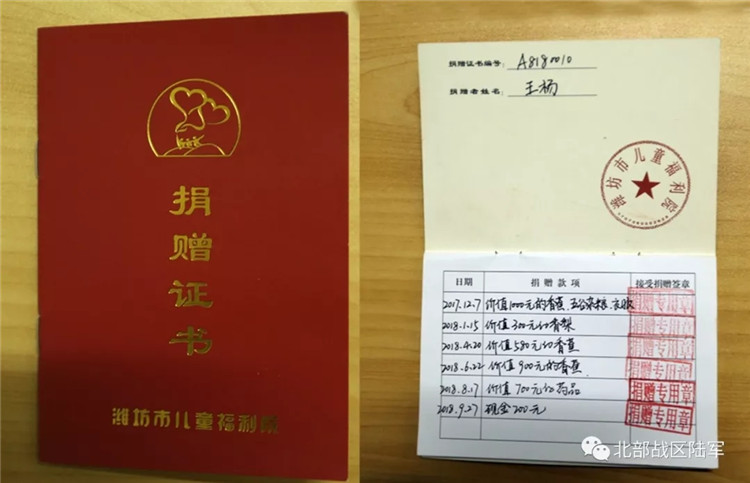 捐赠证书
潍坊市儿童福利院
捐赠证书编号: A8180010
捐赠者姓名: 王杨
潍坊市儿童福利院
日期 捐赠款项 接受捐赠签章
2017.12.7 价值1000元的香蕉、五谷杂粮、衣服 捐赠专用章
2018.1.15 价值300元的香梨 捐赠专用章
2018.4.20 价值580元的香蕉 捐赠专用章
2018.6.22 价值900元的香蕉 捐赠专用章
2018.8.17 价值700元的药品 捐赠专用章
2018.9.27 现金200元 捐赠专用章
北部战区陆军